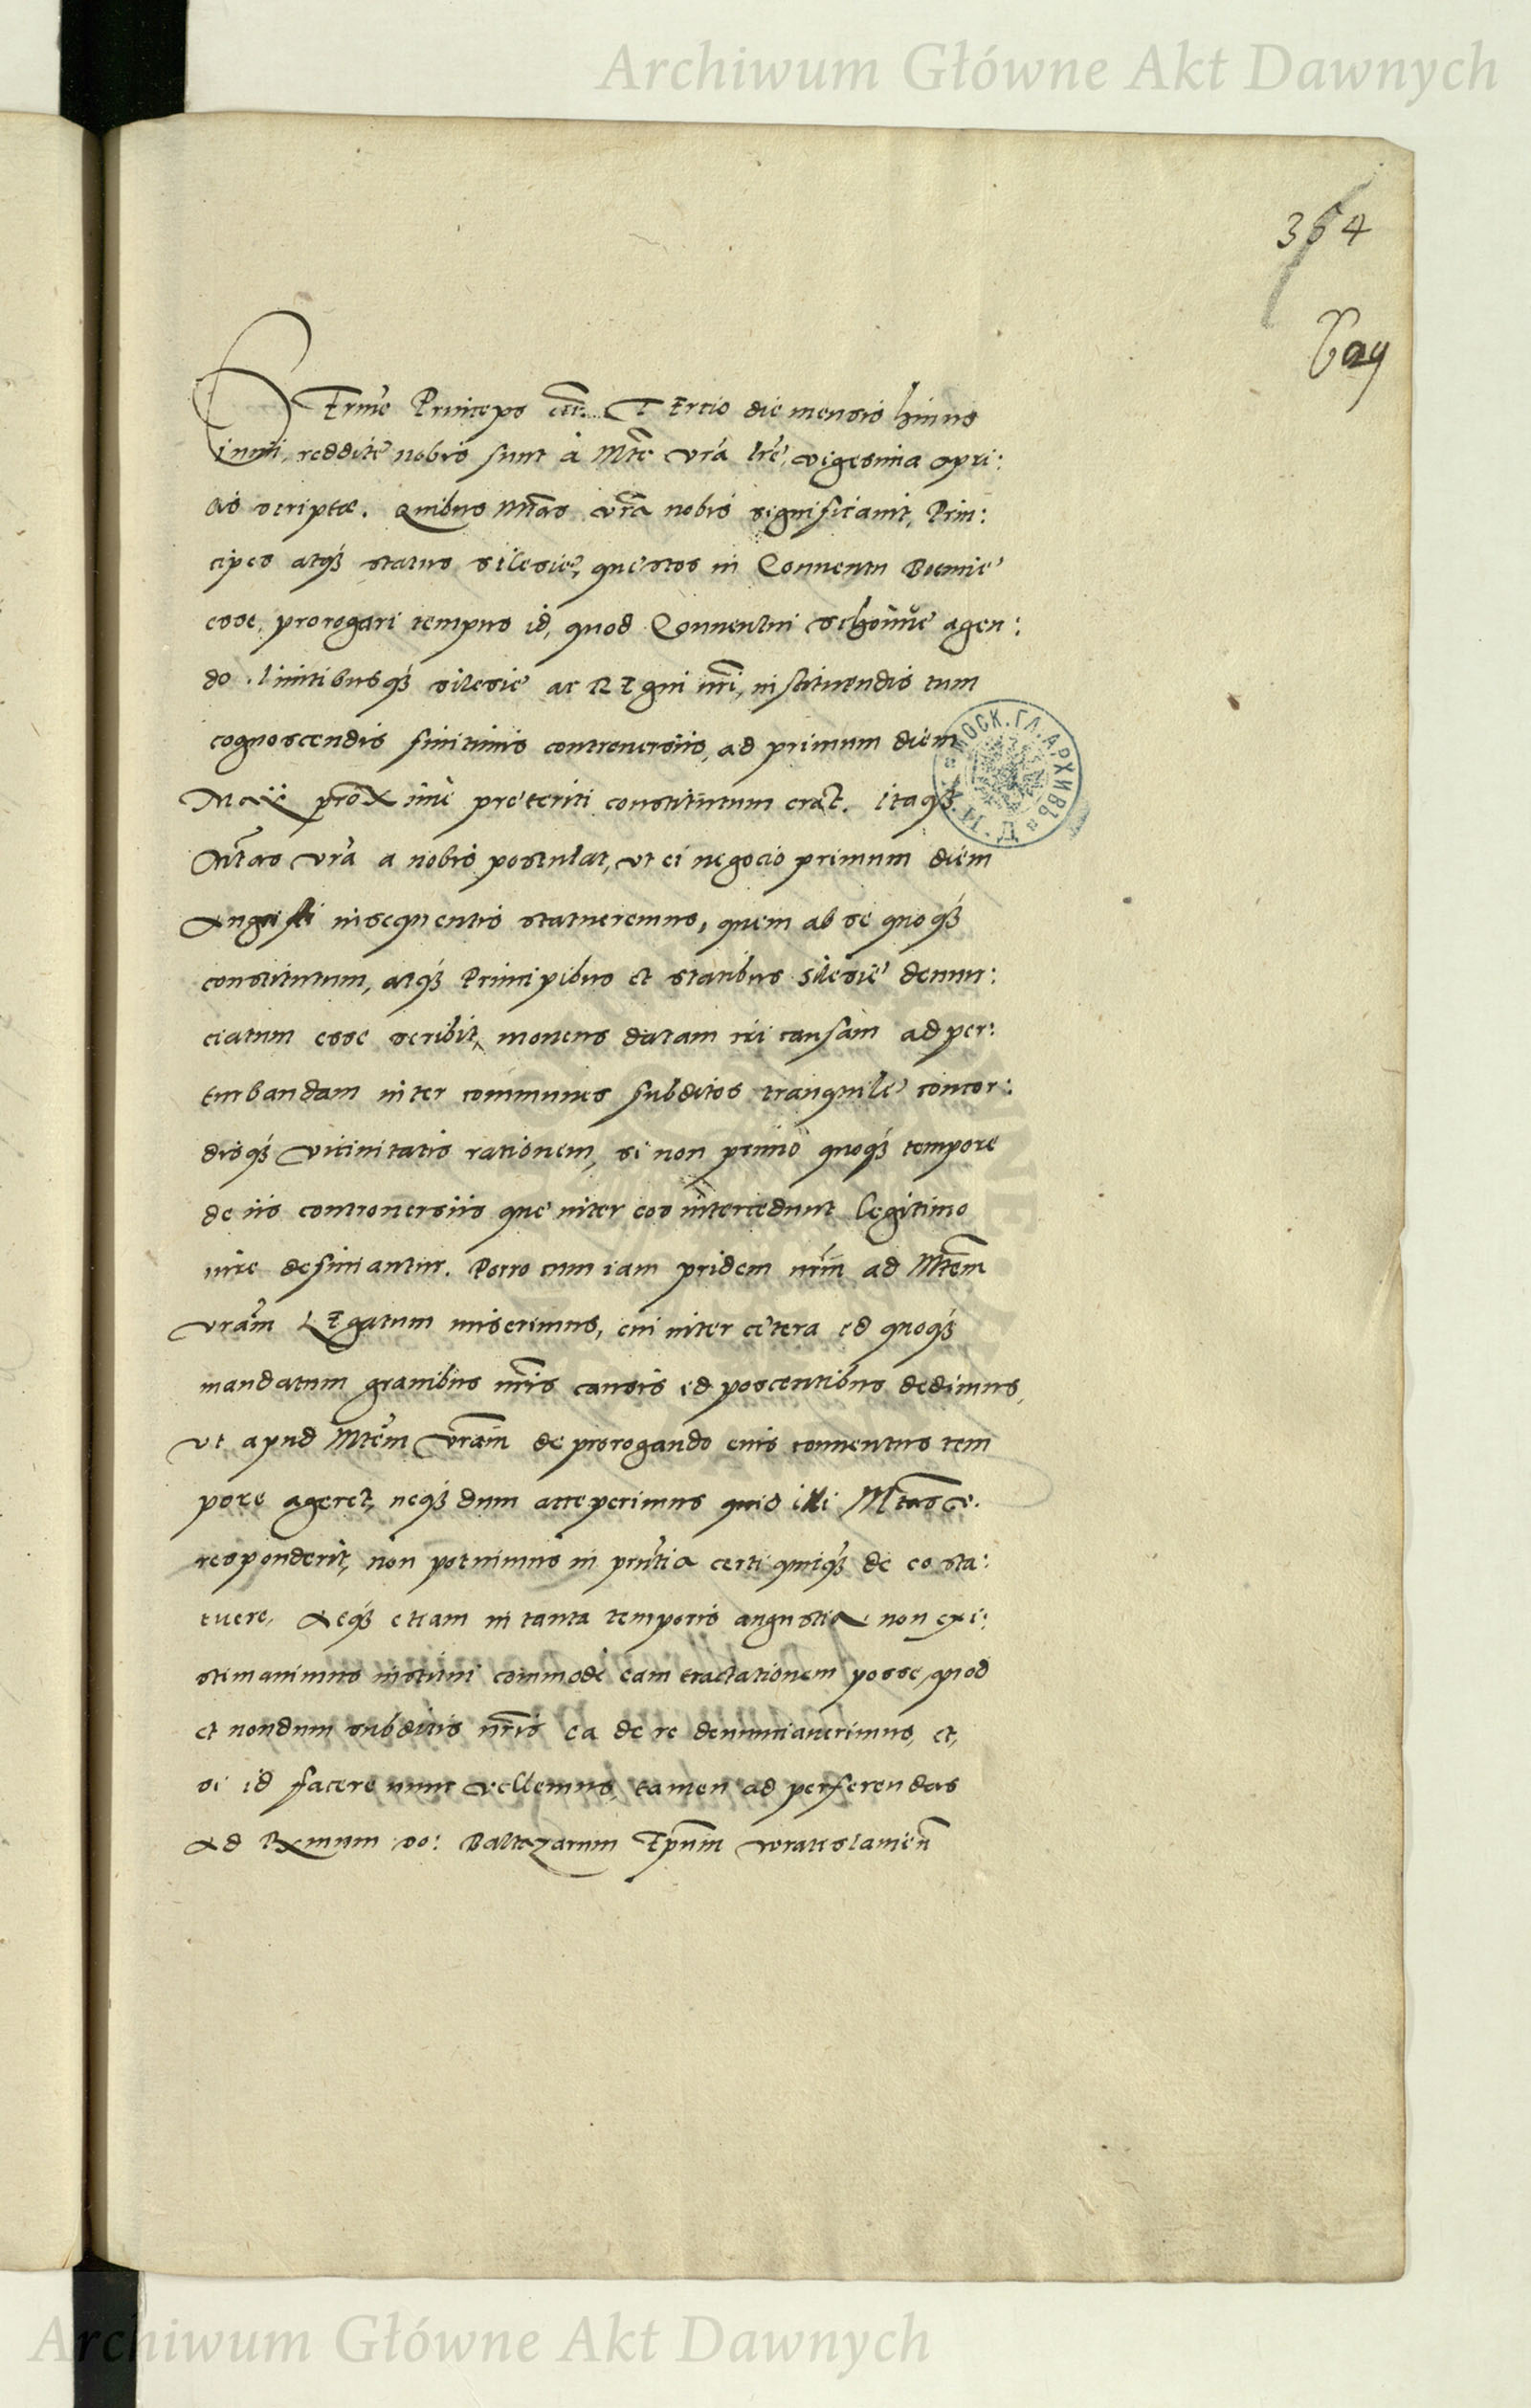 Archiwum Główne Akt Dawnych
354
SErme Princeps etc. TErtio die mensis huius
iunii, reddite nobis sunt à Mte vra lre, vigesima apri:
lis scriptæ. Quibus Mtas vra nobis significauit, Prin:
cipes atq3 status Silesie, questos in Conuentu
esse, prorogari tempus id, quod Conuentui agen:
do limitibusq3 Silesie ac REgni nri, instituendis tum
cognoscendis finitimis controuersiis, ad primum diem
Maii proxime preteriti constitutum erat. Itaq3
Mtas vra a nobis postulat, vt ei negocio primum diem
Augusti insequentis statueremus, quem ab se quoq3
constitutum, atq3 Principibus et statibus Silesie denun:
ciatum esse scribit, monens datam iri causam ad per:
turbandam inter communes subditos tranquile concor:
disq3 vicinitatis rationem, si non primo quoq3 tempore
de iis controuersiis que inter eos intercedunt legitimo
iure definiantur. Porro cum iam pridem nrm ad Mtem
vram LEgatum miserimus, cui inter cetera id quoq3
mandatum grauibus nris causis id poscentibus dedimus,
vt apud Mtem vram de prorogando eius conuentus tem
pore ageret, neq3 dum acceperimus quid illi Mtas v.
responderit, non potuimus in prntia certi quiq3 de eo sta:
tuere. Neq3 etiam in tanta temporis angustia non exi:
stimauimus institui commode eam tractationem posse, quod
et nondum subditis nris ea de re denunciauerimus, et,
si id facere nunc vellemus, tamen ad perferendas
Ad Rxmum do: Baltazarum Epum wratislauien
МОСК. ГЛ. АРХИВЪ М. И. Д.
Archiwum Główne Akt Dawnych